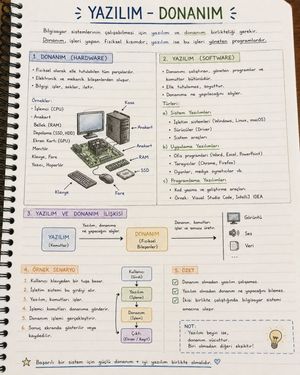 YAZILIM - DONANIM
Bilgisayar sistemlerinin çalışabilmesi için yazılım ve donanım birlikteliği gerekir.
Donanım, işleri yapan fiziksel kısımdır; yazılım ise bu işleri yöneten programlardır.
1. DONANIM (HARDWARE)
• Fiziksel olarak elle tutulabilen tüm parçalardır.
• Elektronik ve mekanik bileşenlerden oluşur.
• Bilgiyi işler, saklar, iletir.
Örnekler:
- İşlemci (CPU)
- Anakart
- Bellek (RAM)
- Depolama (SSD, HDD)
- Ekran Kartı (GPU)
- Monitör
- Klavye, Fare
- Yazıcı, Hoparlör
Kasa
Anakart
RAM
SSD
Klavye
Fare
2. YAZILIM (SOFTWARE)
• Donanımı çalıştıran, yöneten programlar ve
komutlar bütünüdür.
• Elle tutulamaz, soyuttur.
• Donanıma ne yapılacağını söyler.
Türleri:
a) Sistem Yazılımları
• İşletim sistemleri (Windows, Linux, macOS)
• Sürücüler (Driver)
• Sistem araçları
b) Uygulama Yazılımları
• Ofis programları (Word, Excel, PowerPoint)
• Tarayıcılar (Chrome, Firefox)
• Oyunlar, medya oynatıcılar vb.
c) Programlama Yazılımları
• Kod yazma ve geliştirme araçları
• Örnek: Visual Studio Code, IntelliJ IDEA
3. YAZILIM VE DONANIM İLİŞKİSİ
YAZILIM
(Komutlar)
Yazılım, donanıma
ne yapacağını söyler.
DONANIM
(Fiziksel
Bileşenler)
Donanım, komutları
işler ve sonucu üretir.
Görüntü
Ses
Veri
...
4. ÖRNEK SENARYO
1. Kullanıcı klavyeden bir tuşa basar.
2. İşletim sistemi bu girdiyi alır.
3. Yazılım, komutları işler.
4. İşlemci komutları donanıma gönderir.
5. Donanım işlemi gerçekleştirir.
6. Sonuç ekranda gösterilir veya
kaydedilir.
Kullanıcı
(Girdi)
Yazılım
(İşleme)
Donanım
(İşlem)
Çıktı
(Ekran / Kayıt)
5. ÖZET
Donanım olmadan yazılım çalışamaz.
Yazılım olmadan donanım ne yapacağını bilemez.
İkisi birlikte çalıştığında bilgisayar sistemi
amacına ulaşır.
NOT:
Yazılım beyin ise,
donanım vücuttur.
Biri olmadan diğeri eksiktir!
Başarılı bir sistem için güçlü donanım + iyi yazılım birlikte olmalıdır.